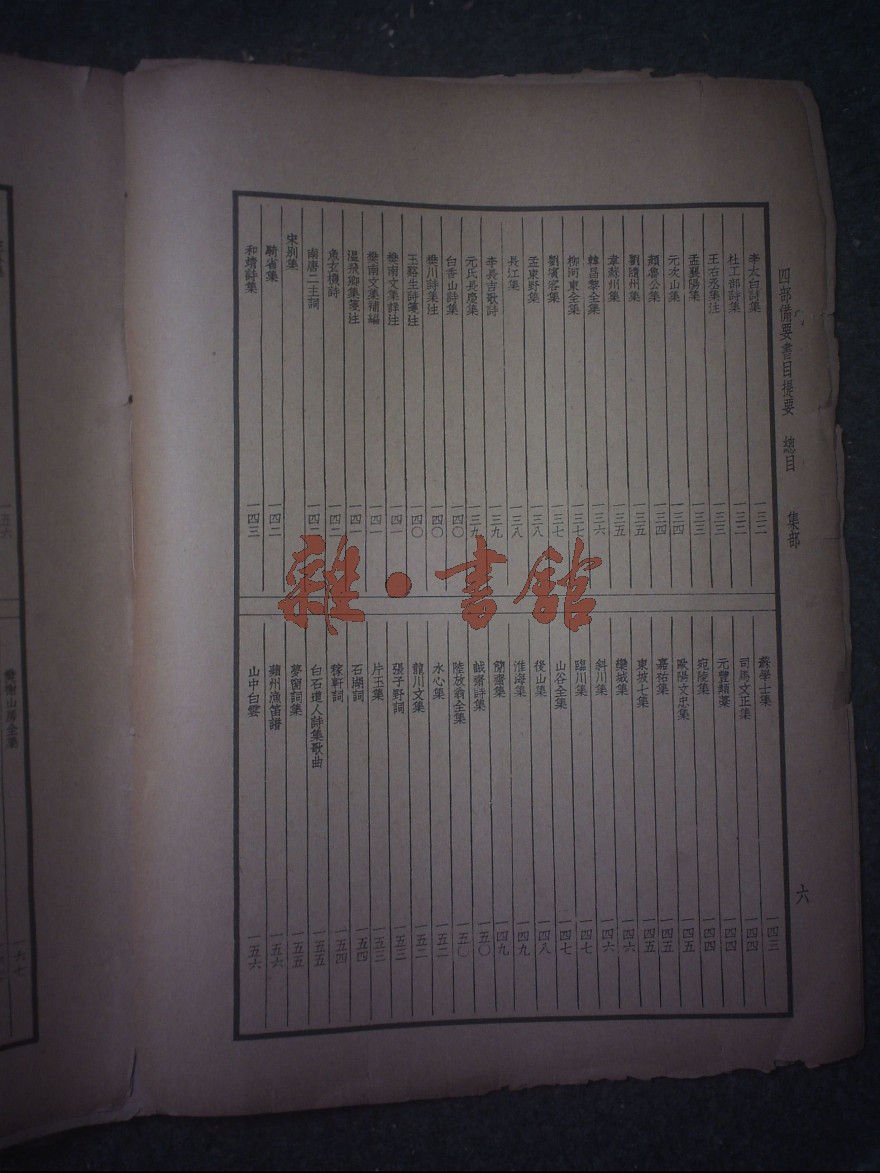 四部備要書目提要 總目 集部 六
李太白詩集 一三二
杜工部詩集 一三二
王右丞集注 一三三
孟襄陽集 一三三
元次山集 一三四
顏魯公集 一三四
劉隨州集 一三五
韋蘇州集 一三五
韓昌黎全集 一三六
柳河東全集 一三七
劉賓客集 一三七
孟東野集 一三八
長江集 一三八
李長吉歌詩 一三九
元氏長慶集 一三九
白香山詩集 一四〇
樊川詩集注 一四〇
玉谿生詩箋注 一四〇
樊南文集詳注 一四一
樊南文集補編 一四一
溫飛卿集箋注 一四一
魚玄機詩 一四二
南唐二主詞 一四二
宋別集
騎省集 一四二
和靖詩集 一四三
蘇學士集 一四三
司馬文正集 一四四
元豐類藁 一四四
宛陵集 一四四
歐陽文忠集 一四五
嘉祐集 一四五
東坡七集 一四五
欒城集 一四六
斜川集 一四六
臨川集 一四七
山谷全集 一四七
後山集 一四八
淮海集 一四九
簡齋集 一四九
誠齋詩集 一五〇
陸放翁全集 一五〇
水心集 一五二
龍川文集 一五二
張子野詞 一五三
片玉集 一五三
石湖詞 一五四
稼軒詞 一五四
白石道人詩集歌曲 一五五
夢窗詞集 一五五
蘋州漁笛譜 一五六
山中白雲 一五六
雜·書館
一六七